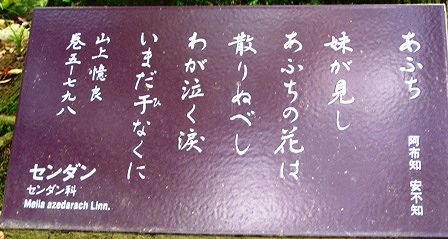 あふち
阿布知 安不知
妹が見し
あふちの花は
散りぬべし
わが泣く涙
いまだ干なくに
ひ
山上憶良
巻五ー七九八
センダン
センダン科
Melia azedarach Linn.